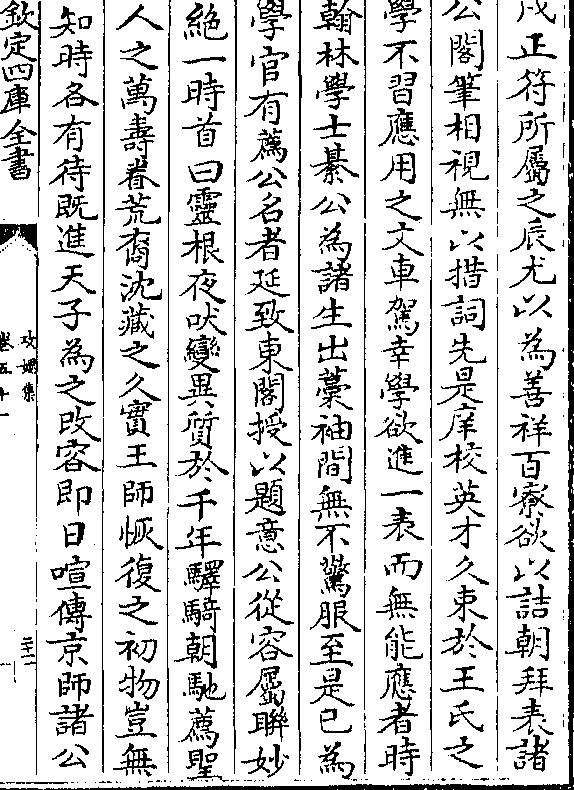 戌正符所屬之辰尤以為善祥百寮欲以詰朝拜表諸
公閣筆相視無以措詞先是庠校英才久束於王氏之
學不習應用之文車駕幸學欲進一表而無能應者時
翰林學士綦公為諸生出藁袖間無不驚服至是已為
學官有薦公名者延致東閣授以題意公從容屬聯妙
絶一時首曰靈根夜吠變異質於千年驛騎朝馳薦聖
人之萬壽眷荒裔沈藏之久實王師恢復之初物豈無
知時各有待既進天子為之改容即日喧傳京師諸公
欽定四庫全書
攻媿集
卷五十一